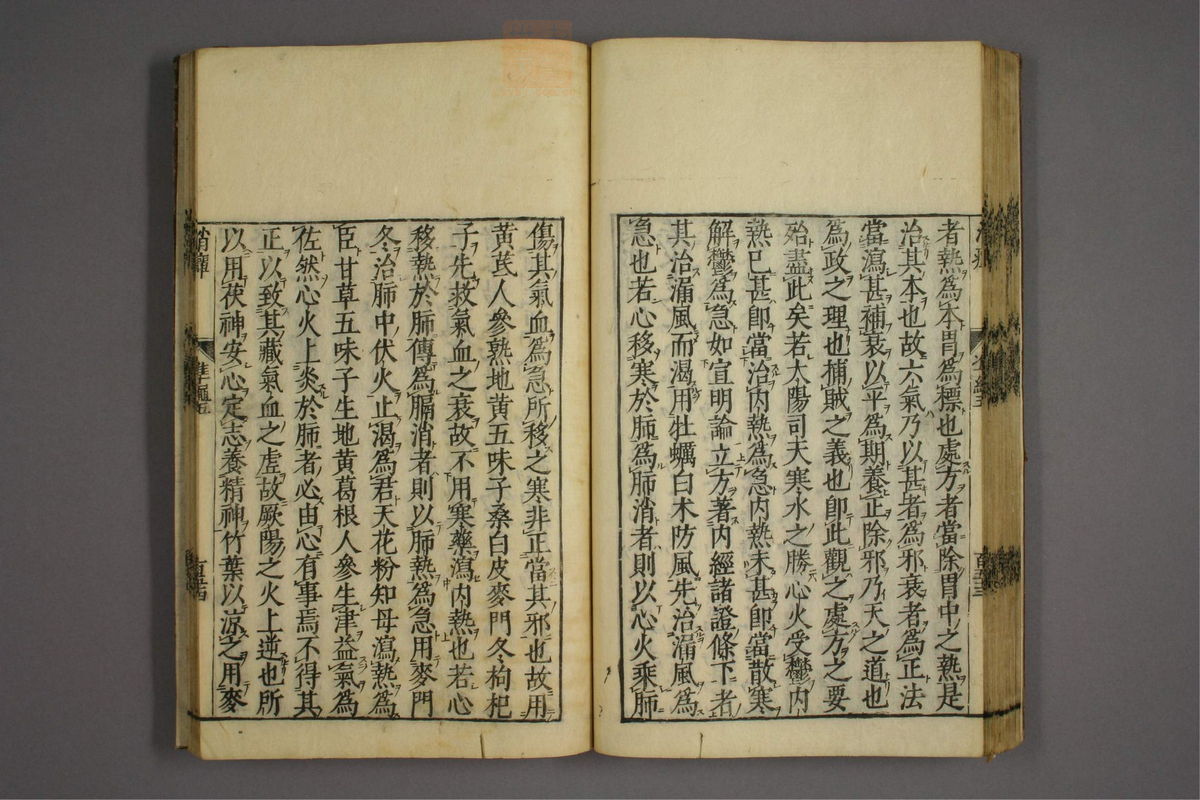 者熱爲本胃爲標也處方者當除胃中之熱是
治其本也故六氣乃以甚者爲邪衰者爲正法
當瀉甚補衰以平爲期養正除邪乃天之道也
爲政之理也捕賊之義也即此觀之處方之要
殆盡此矣若太陽司天寒水之勝心火受鬱内
熱已甚即當治内熱爲急内熱未甚即當散寒
解鬱爲急如宣明論立方著内經諸證條下者
其治漏風而渴用牡蠣白术防風先治漏風爲
急也若心移寒於肺爲肺消者則以心火乘肺
傷其氣血爲急所移之寒非正當其邪也故用
黄芪人參熟地黄五味子桑白皮麥門冬枸杞
子先救氣血之衰故不用寒藥瀉内熱也若心
移熱於肺傳爲膈消者則以肺熱爲急用麥門
冬治肺中伏火止渴爲君天花粉知母瀉熱爲
臣甘草五味子生地黄葛根人參生津益氣爲
佐然心火上炎於肺者必由心有事焉不得其
正以致其藏氣血之虚故厥陽之火上逆也所
以用茯神安心定志養精神竹葉以凉之用麥
消癉
準繩五